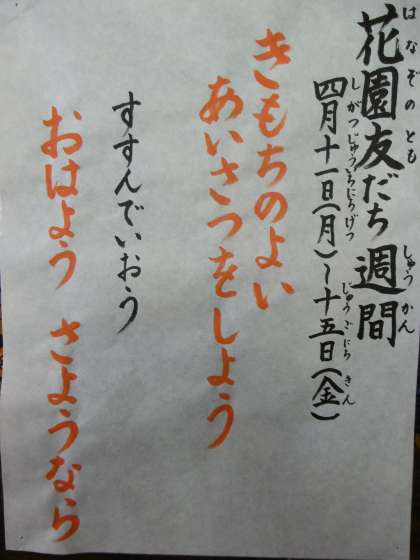 花園友だち週間
はなぞのとも しゅうかん
四月十一日(月)~十五日(金)
しがつじゅういちにちげつ じゅうごにち きん
きもちのよい
あいさつをしよう
すすんでいおう
おはよう さようなら